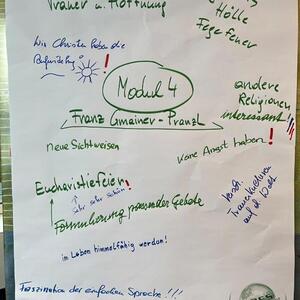 Trauer u. Hoffnung
Hölle
Fegefeuer
Wir Christen haben die
!
Modul 4
Franz Gmainer-Pranzl
andere
Religionen
interessant!
neue Sichtweisen
keine Angst haben!
Eucharistiefeier
sehr sehr schön!
Formulierung passender Gebete
Trauerkulturen
auf d. Welt
im Leben himmelfähig werden!
Faszination der einfachen Sprache!!!